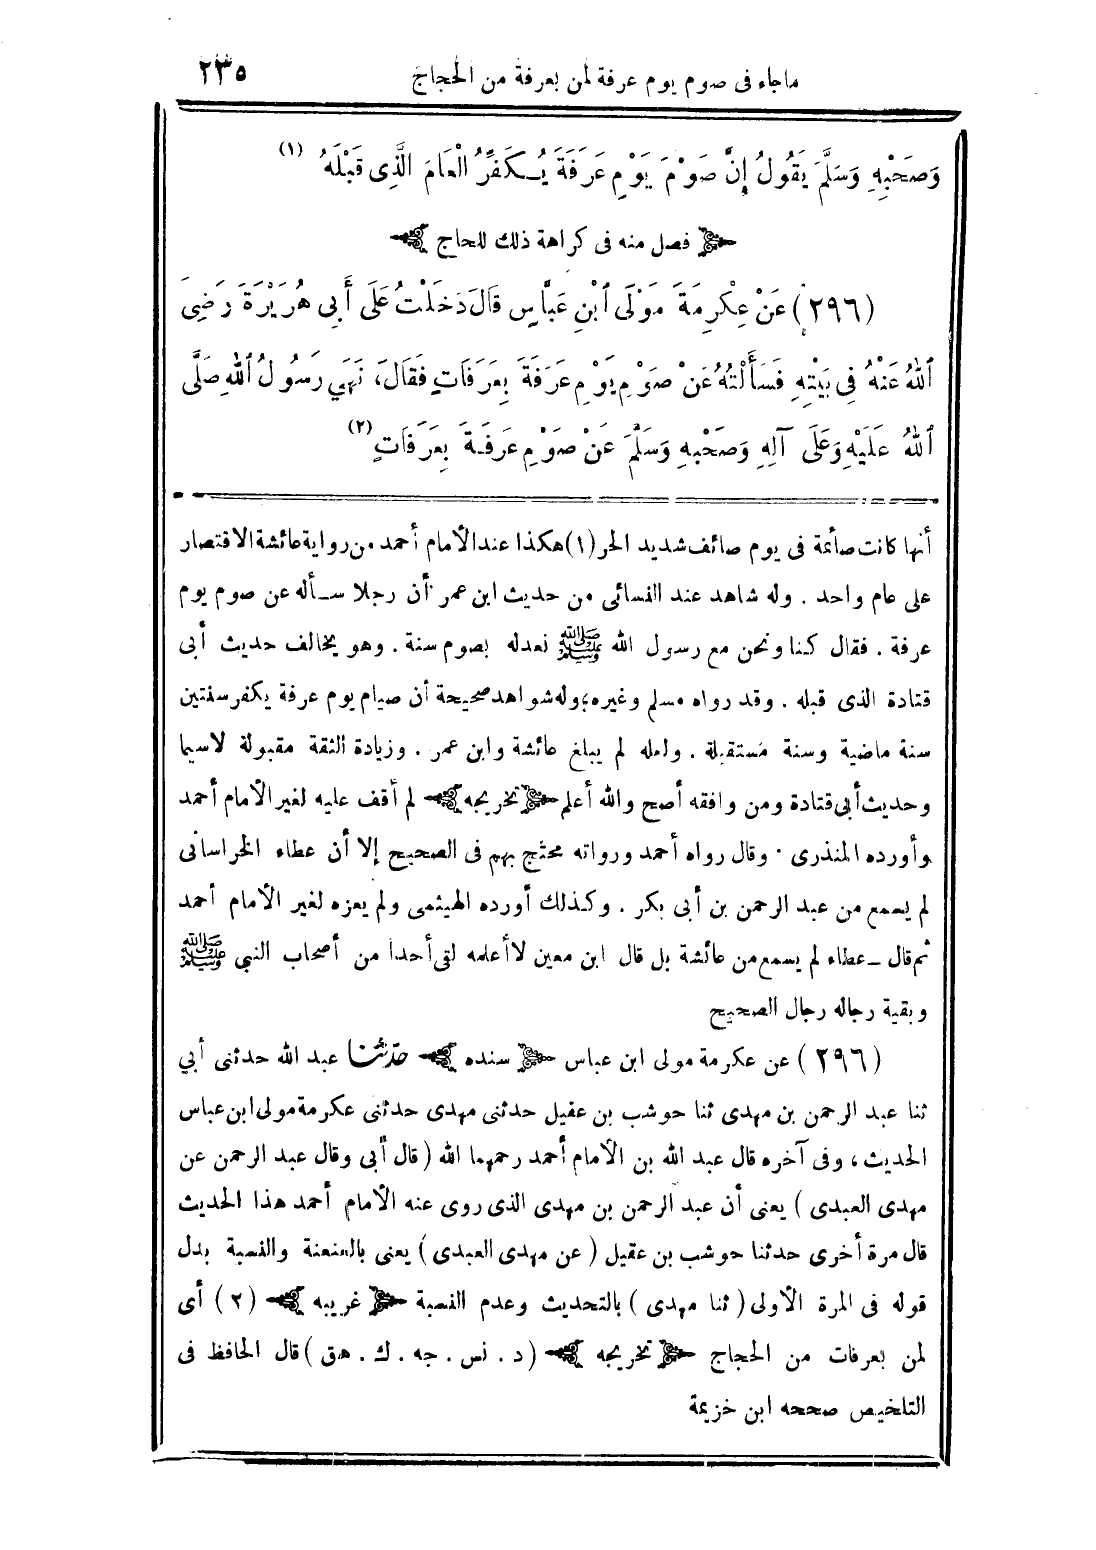 ماجاء فى صوم يوم عرفة لمن بعرفة من الحجاج ٢٣٥
وَصَحْبِهِ وَسَلَّمَ يَقُولُ إِنَّ صَوْمَ يَوْمِ عَرَفَةَ يُكَفِّرُ الْعَامَ الَّذِى قَبْلَهُ (١)
فصل منه فى كراهة ذلك للحاج
(٢٩٦) عَنْ عِكْرِمَةَ مَوْلَى ٱبْنِ عَبَّاسٍ قَالَ دَخَلْتُ عَلَى أَبِى هُرَيْرَةَ رَضِىَ
ٱللهُ عَنْهُ فِى بَيْتِهِ فَسَأَلْتُهُ عَنْ صَوْمِ يَوْمِ عَرَفَةَ بِعَرَفَاتٍ فَقَالَ، نَهَى رَسُولُ ٱللهِ صَلَّى
ٱللهُ عَلَيْهِ وَعَلَى آلِهِ وَصَحْبِهِ وَسَلَّمَ عَنْ صَوْمِ عَرَفَةَ بِعَرَفَاتٍ (٢)
أنها كانت صائمة فى يوم صائف شديد الحر (١) هكذا عند الأمام أحمد من رواية عائشة الاقتصار
على عام واحد . وله شاهد عند النسائى من حديث ابن عمر أن رجلا سـأله عن صوم يوم
عرفة . فقال كنا ونحن مع رسول الله ﷺ نعدله بصوم سنة . وهو يخالف حديث أبى
قتادة الذى قبله . وقد رواه مسلم وغيره؛ وله شواهد صحيحة أن صيام يوم عرفة يكفر سنتين
سنة ماضية وسنة مستقبلة . ولعله لم يبلغ عائشة وابن عمر . وزيادة الثقة مقبولة لاسيما
وحديث أبى قتادة ومن وافقه أصح والله أعلم تخريجه لم أقف عليه لغير الأمام أحمد
وأورده المنذرى . وقال رواه أحمد ورواته محتج بهم فى الصحيح إلا أن عطاء الخراسانى
لم يسمع من عبد الرحمن بن أبى بكر . وكذلك أورده الهيثمى ولم يعزه لغير الأمام أحمد
ثم قال ــ عطاء لم يسمع من عائشة بل قال ابن معين لا أعلمه لقى أحدا من أصحاب النبى ﷺ
وبقية رجاله رجال الصحيح
(٢٩٦) عن عكرمة مولى ابن عباس سنده حدّثنا عبد الله حدثنى أبي
ثنا عبد الرحمن بن مهدى ثنا حوشب بن عقيل حدثنى مهدى حدثنى عكرمة مولى ابن عباس
الحديث، وفى آخره قال عبد الله بن الأمام أحمد رحمهما الله (قال أبى وقال عبد الرحمن عن
مهدى العبدى) يعنى أن عبد الرحمن بن مهدى الذى روى عنه الأمام أحمد هذا الحديث
قال مرة أخرى حدثنا حوشب بن عقيل (عن مهدى العبدى) يعنى بالعنعنة والنسبة بدل
قوله فى المرة الأولى (ثنا مهدى) بالتحديث وعدم النسبة غريبه (٢) أى
لمن بعرفات من الحجاج تخريجه (د . نس . جه . ك . هق) قال الحافظ فى
التلخيص صححه ابن خزيمة